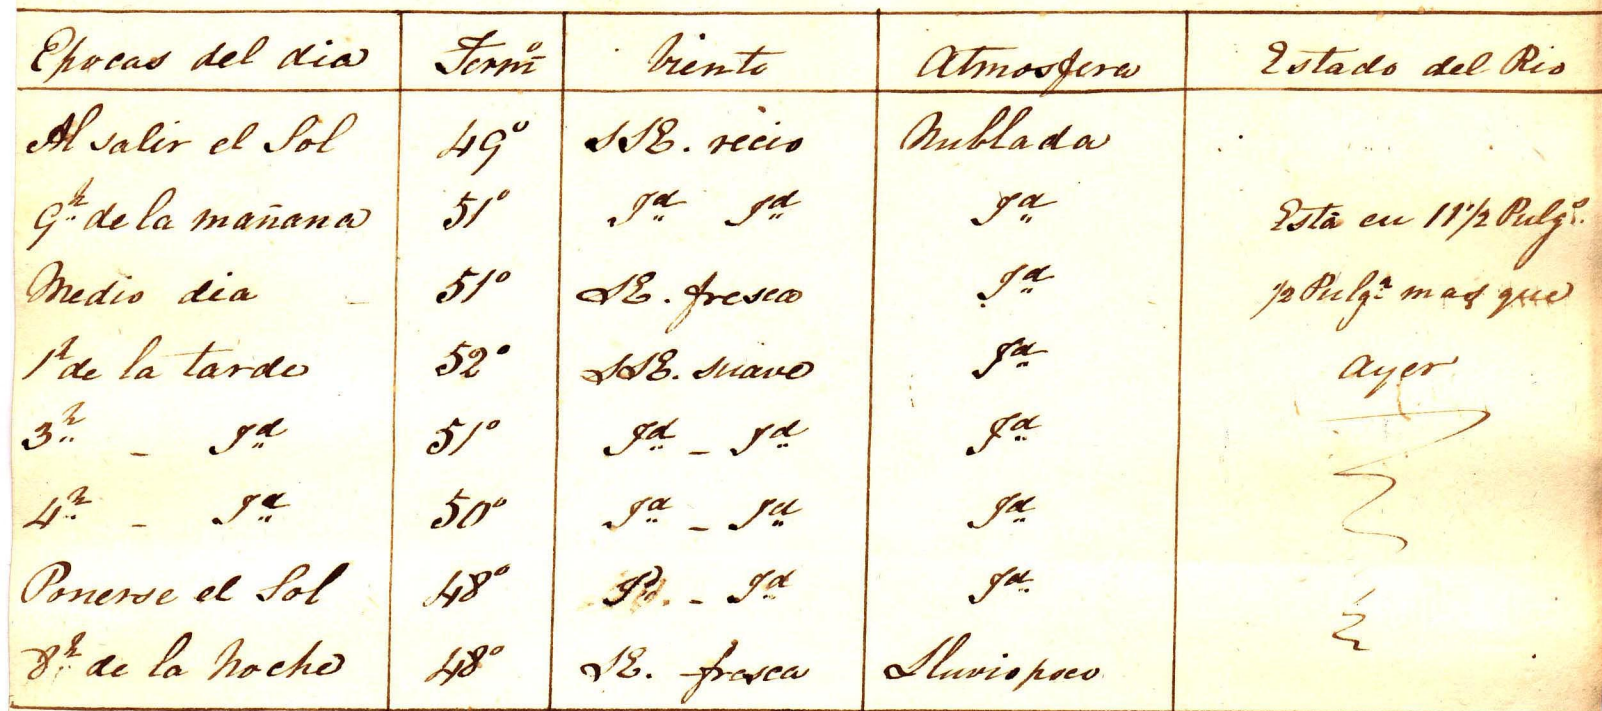 Epocas del dia Termº Viento Atmosfera Estado del Rio
Al salir el Sol 49º SSE. recio Nublada
9h de la mañana 51º Id Id Id Está en 11 1/2 Pulgs.
Medio dia 51º SE. fresco Id 1/2 Pulga mas que
1h de la tarde 52º SSE. suave Id Ayer
3h - Id 51º Id - Id Id
4h - Id 50º Id - Id Id
Ponerse el Sol 48º Id - Id Id
8h de la Noche 48º SE. fresca Lluvio poco